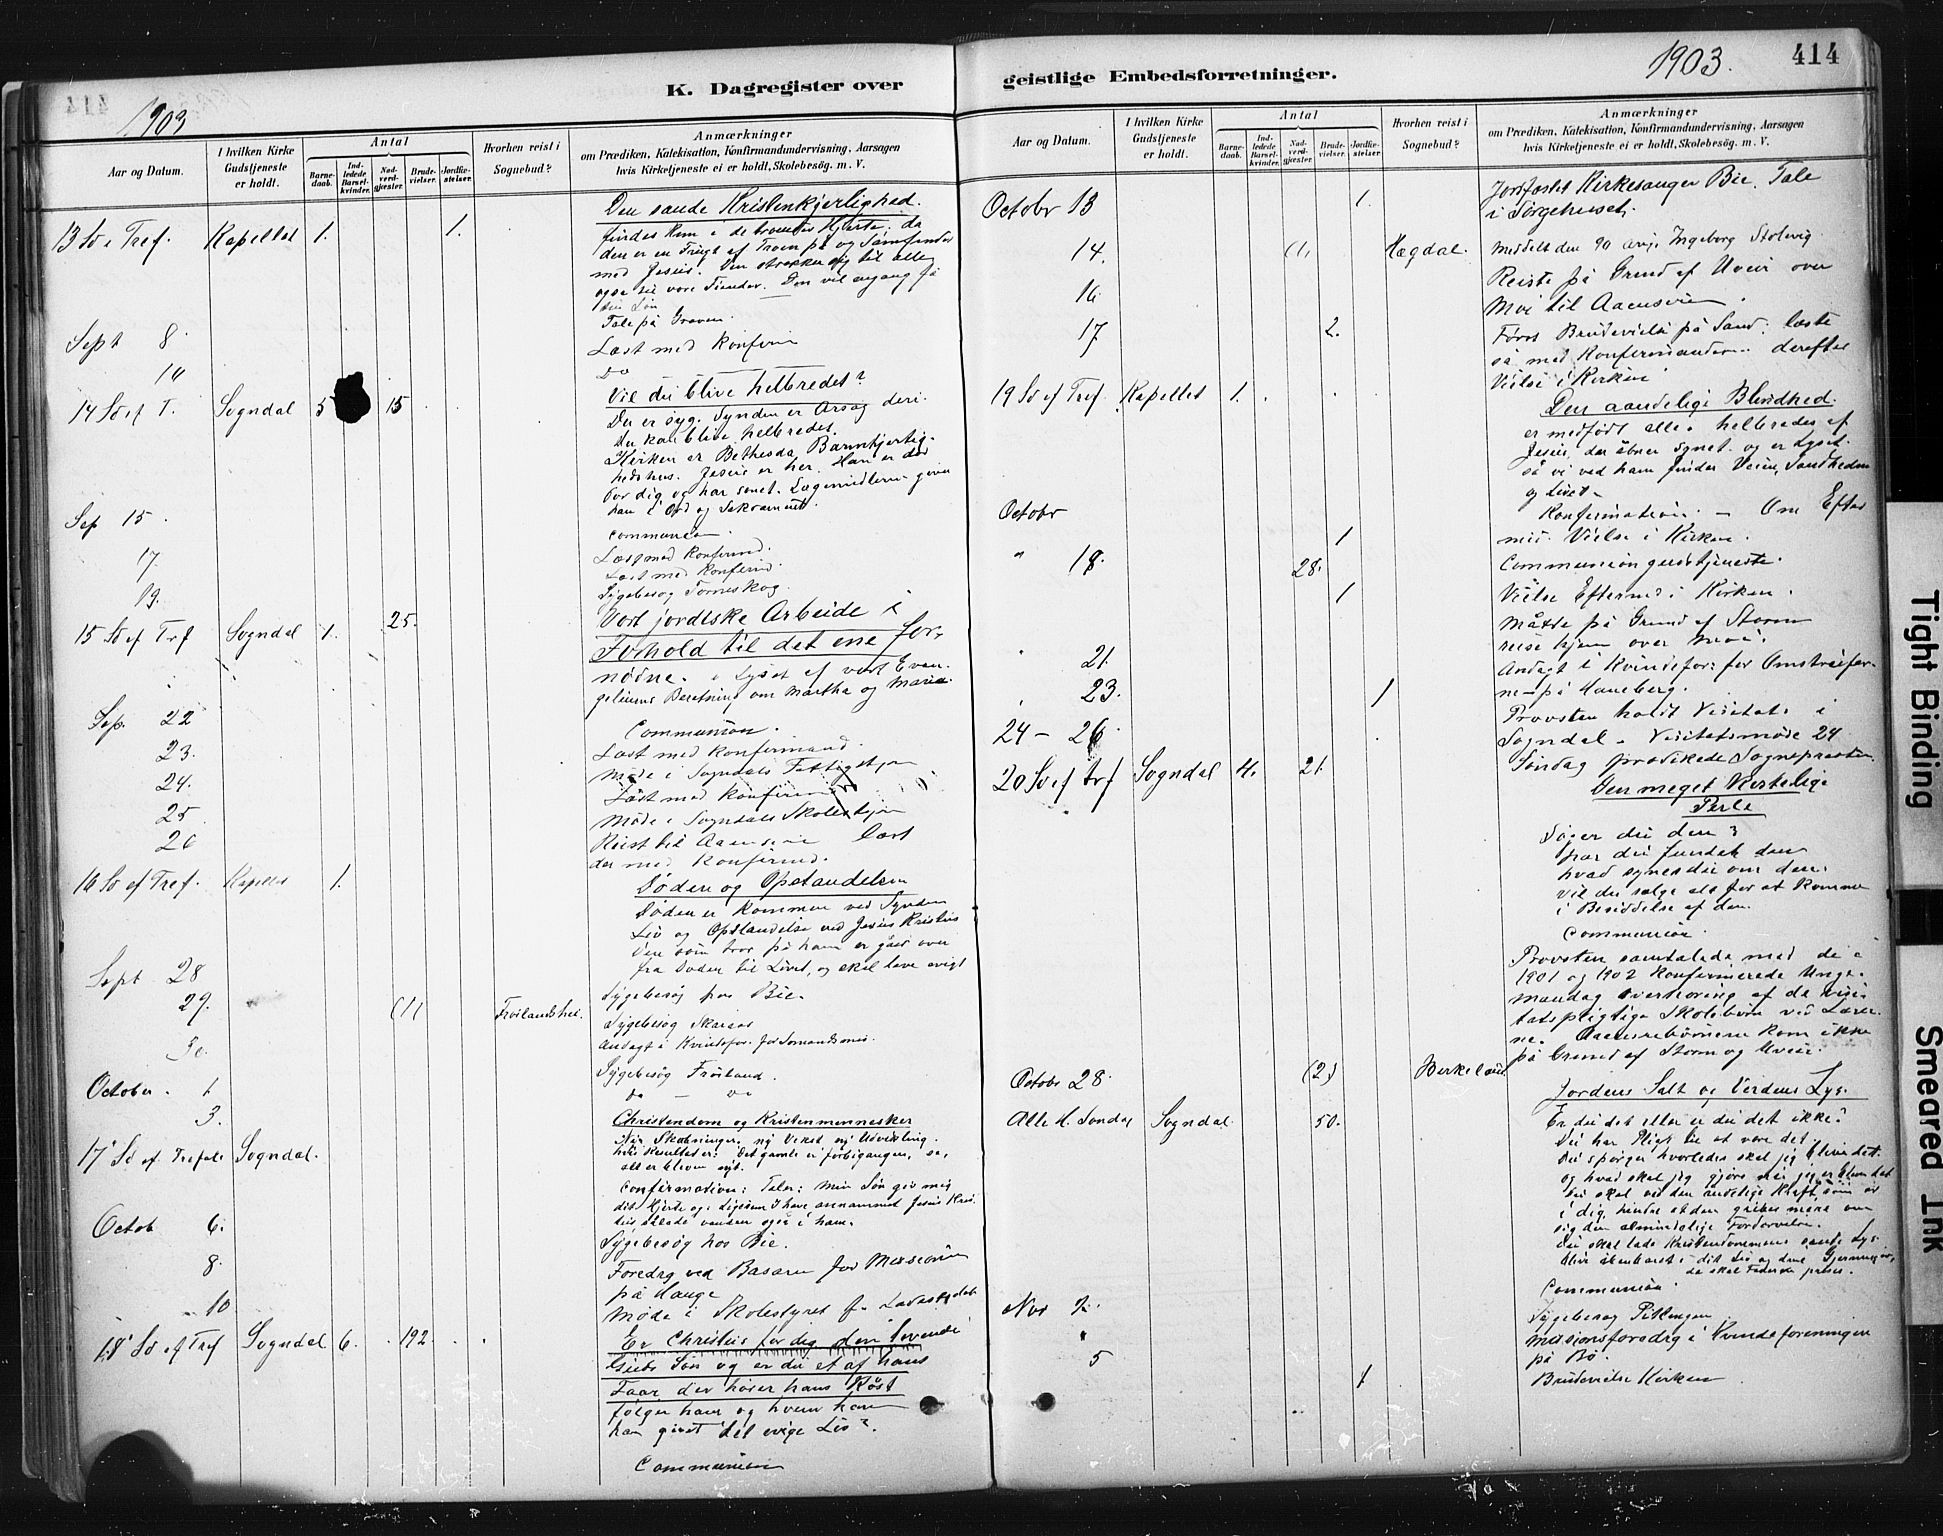 414
1903
K. Dagregister over
geistlige Embedsforretninger.
1903.
Aar og Datum.
I hvilken Kirke Gudstjeneste er holdt.
Antal
Barne-daab.
Ind-ledede Barsel-kvinder.
Nad-verd-gjester.
Brude-vielser.
Jordfæ-stelser.
Hvorhen reist i Sognebud?
Anmærkninger
om Prædiken, Katekisation, Konfirmandundervisning, Aarsagen
hvis Kirketjeneste ei er holdt, Skolebesøg. m. V.
13 Sø e Tref. Kapellet 1. 1.
Den sande Kristenkjerlighed.
findes kun i de troendes Hjerte, da
den er en Frugt af Troen på og Samfundet
med Jesus. Den strækker sig til alle
også til vore Fiender. Den vil engang få
sin Løn
Tale på Graven.
Sept 8
Læst med Konfirm
14
Do
14 Sø ef T. Sogndal 5 15
Vil du blive helbredet?
Du er syg. Synden er Årsag deri.
Du kan blive helbredet.
Kirken er Bethesda, Barmhjertig-
hedshus. Jesus er her. Han er død
for dig og har sonet. Lægemidlerne giver
han i Ord og Sakrament.
Communion.
Sep 15.
Læst med Konfirmd.
17.
Læst med Konfirmd.
19.
Sygebesøg Torneskog.
15 Sø ef Trf Sogndal 1. 25.
Vort jordiske Arbeide i
Forhold til det ene for-
nødne. i Lyset af vort Evan-
geliums Beretning om Martha og Maria.
Communion.
Sep. 22
Læst med Konfirmand.
23.
Møde i Sogndals Fattigstyre
24.
Læst med Konfirmand
25.
Møde i Sogndals Skolestyre
26
Reist til Aaensire læst
der med Konfirmd.
16 Sø ef Tref. Kapellet 1.
Døden og Opstandelsen
Døden er kommen ved Synden
Liv og Opstandelse ved Jesus Kristus
Den som tror på ham er gået over
fra Døden til Livet, og skal leve evigt
Sept 28
Sygebesøg hos Bie.
29. (1) Frøilandshei.
Sygebesøg Skaraas
Andagt i Kvindefor. for Sømandsmis.
30.
Sygebesøg Frøiland.
October. 1
do — do
3.
Christendom og Kristenmennesker
17 Sø ef Trefol. Sogndal.
Nye Skabninger, ny Vekst og Udvikling.
hvis Resultat er: det gamle er forbigangen, se,
alt er bleven nyt.
Confirmation: Taler: Min Søn giv mig
dit Hjerte og: ligesom I have annammet Jesus Kris-
tus således vandrer også i ham.
Octob 6.
Sygebesøg hos Bie.
8.
Foredrag ved Basaren for Missionen
på Hauge
10
Møde i Skolestyret f.
18 Sø ef Tref Sogndal 6. 192
Er Christus for dig den levende
Guds Søn og er du et af hans
Faar der hører hans Røst
følger ham og hvem han
har givet det evige Liv?
Communion
414
Aar og Datum.
I hvilken Kirke Gudstjeneste er holdt.
Antal
Barne-daab.
Ind-ledede Barsel-kvinder.
Nad-verd-gjester.
Brude-vielser.
Jordfæ-stelser.
Hvorhen reist i Sognebud?
Anmærkninger
om Prædiken, Katekisation, Konfirmandundervisning, Aarsagen
hvis Kirketjeneste ei er holdt, Skolebesøg. m. V.
Octobr 13 1.
Jordfæstet Kirkesanger Bie. Tale
i Sørgehuset.
14. (1) Hægdal.
meddelt den 90 årige Ingeborg Stolsvig.
16
Reiste på Grund af Uveir over
Moi til Aaensire.
17 2.
Først Brudevielse på Sand. læste
så med Konfirmanderne derefter
Vielse i Kirken
19 Sø ef Tref Kapellet 1.
Den aandelige Blindhed.
er medfødt alle. helbredes af
Jesus, der åbner Synet. og er Lyset.
så vi ved ham finder Veien, Sandheden
og Livet.
Octobr
Konfirmation. — Om Efter
1
mid. Vielse i Kirken.
" 18. 28.
Communiongudstjeneste.
1
Vielse Eftermd i Kirken.
Måtte på Grund af Storm
reise hjem over Moi.
21.
Andagt i Kvindefor: for
ne på Haneberg.
23. 1
24 - 26
Provsten holdt Visitats i
Sogndal. Visitatsmøde 24
20 Sø ef trf Sogndal 4. 21.
Søndag prædikede Sognepræsten.
Den meget kostelige
Perle
Søger du den?
har du fundet den
hvad synes du om den.
vil du sælge alt for at komme
i Besiddelse af den.
Communion.
Provsten samtalede med de i
1901 og 1902 konfirmerede Unge.
Mandag Overhøring af de visi-
tatspligtige Skolebørn ved Lærer-
ne. Aaensirebørnene kom ikke
på Grund af Storm og Uveir.
Octobr 28. (2) Birkeland.
Jordens Salt og Verdens Lys.
Alle H. Søndag Sogndal 50.
Er du det eller er du det ikke?
Du har Pligt til at være det.
Du spørger hvorledes skal jeg blive det.
og hvad skal jeg gjøre når jeg er bleven det
Du skal ved den åndelige Kraft, som er
i dig, hindre at den griber mere om
sig den almindelige Fordærvelse.
Du skal lade Kristendommens sande Lys
blive åbenbaret i dit Liv og dine Gjerninger,
da skal Faderen prises.
Communion.
Nov 2.
Sygebesøg
"
Missionsforedrag i Kvindeforeningen
på Bø.
5 1
Brudevielse Kirken
Tight Binding
Smeared Ink